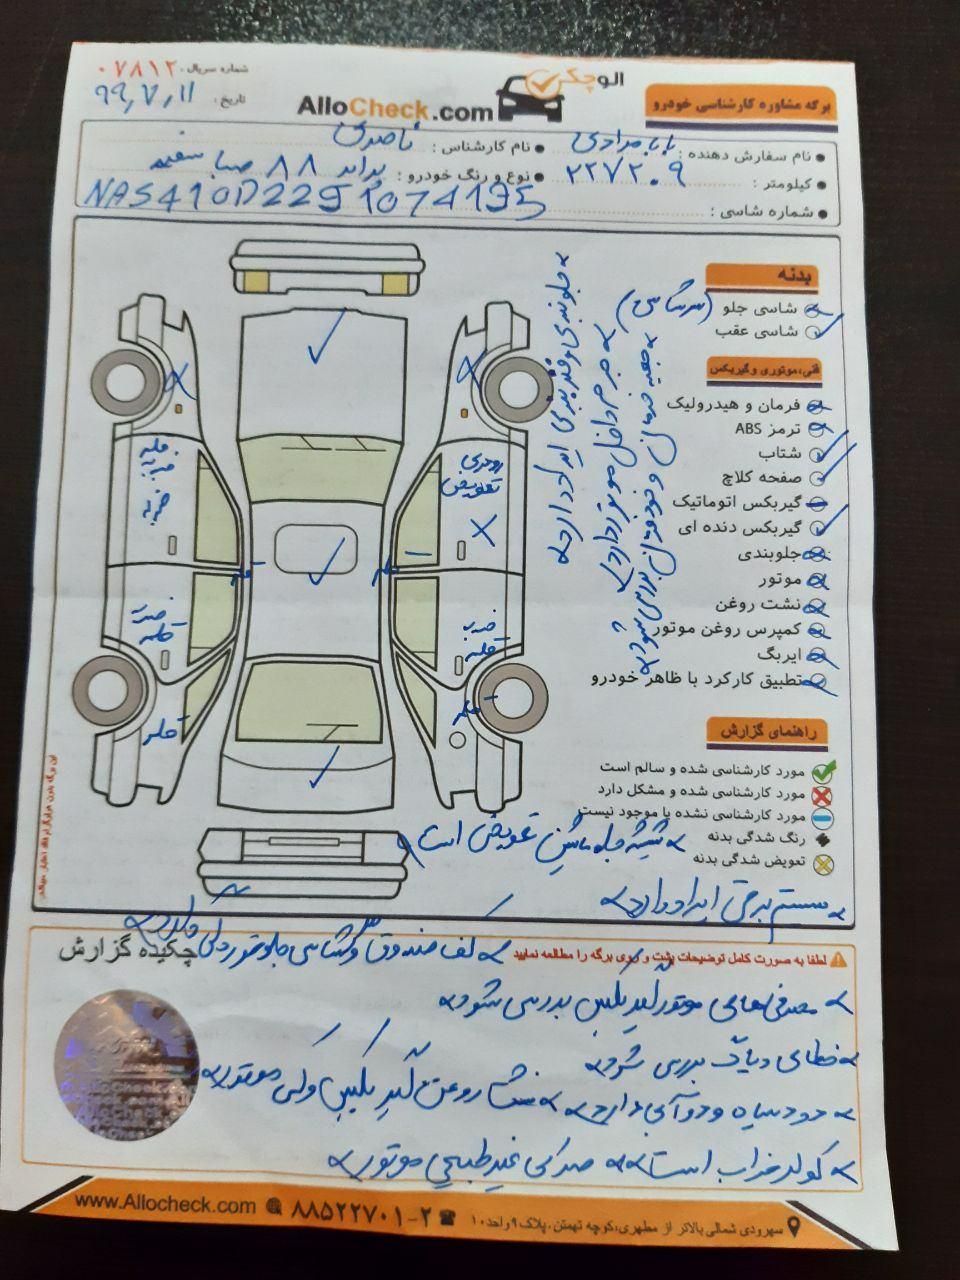 شماره سریال: ۰۷۸۱۲
تاریخ: ۹۹,۷,۱۱
الو چک
AlloCheck.com
برگه مشاوره کارشناسی خودرو
نام سفارش دهنده: بابامرادی
نام کارشناس: ناصری
کیلومتر: ۲۲۷۲۰۹
نوع و رنگ خودرو: پراید ۸۸ صبا سفید
شماره شاسی: NAS410D2291074195
بدنه
شاسی جلو (سرشاسی)
شاسی عقب
فنی، موتوری و گیربکس
فرمان و هیدرولیک
ترمز ABS
شتاب
صفحه کلاچ
گیربکس اتوماتیک
گیربکس دنده ای
جلوبندی
موتور
نشت روغن
کمپرس روغن موتور
ایربگ
تطبیق کارکرد با ظاهر خودرو
جلوبندی و فنربندی ایراد دارد
جرم داخل موتور دارد
جعبه فرمان و خود فرمان بررسی شود
قلم
ضربه
رودری
تعویض
قلم
قلم
ضرب
قلم
ضرب
قلم
قلم
قلم
راهنمای گزارش
مورد کارشناسی شده و سالم است
مورد کارشناسی شده و مشکل دارد
مورد کارشناسی نشده یا موجود نیست
رنگ شدگی بدنه
تعویض شدگی بدنه
شیشه جلو ماشین تعویض است
سیستم برقی ایراد دارد
لطفا به صورت کامل توضیحات پشت و روی برگه را مطالعه نمایید
چکیده گزارش
کف صندوق و سرشاسی جلو خوردگی دارد
مصرفی‌های موتور گیربکس بررسی شود
خطای دیاگ بررسی شود
دود سیاه و دود آبی دارد
نشت روغن گیربکس و کمی موتور
کولر خراب است
صدای غیر طبیعی موتور
www.Allocheck.com
۸۸۵۲۲۷۰۱-۲
سهروردی شمالی بالاتر از مطهری، کوچه تهمتن، پلاک ۹ واحد ۱۰